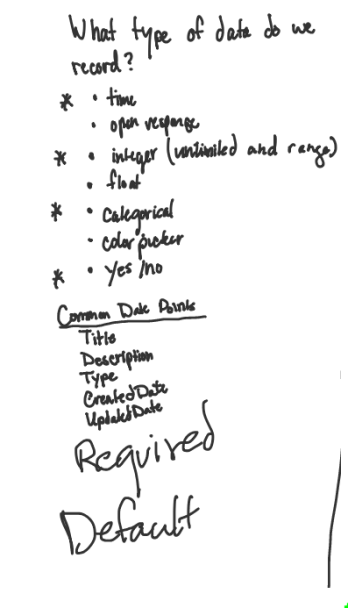 What type of data do we
record?
* • time
• open response
* • integer (unlimited and range)
• float
* • categorical
• color picker
* • Yes/no
Common Data Points
Title
Description
Type
CreatedDate
UpdatedDate
Required
Default